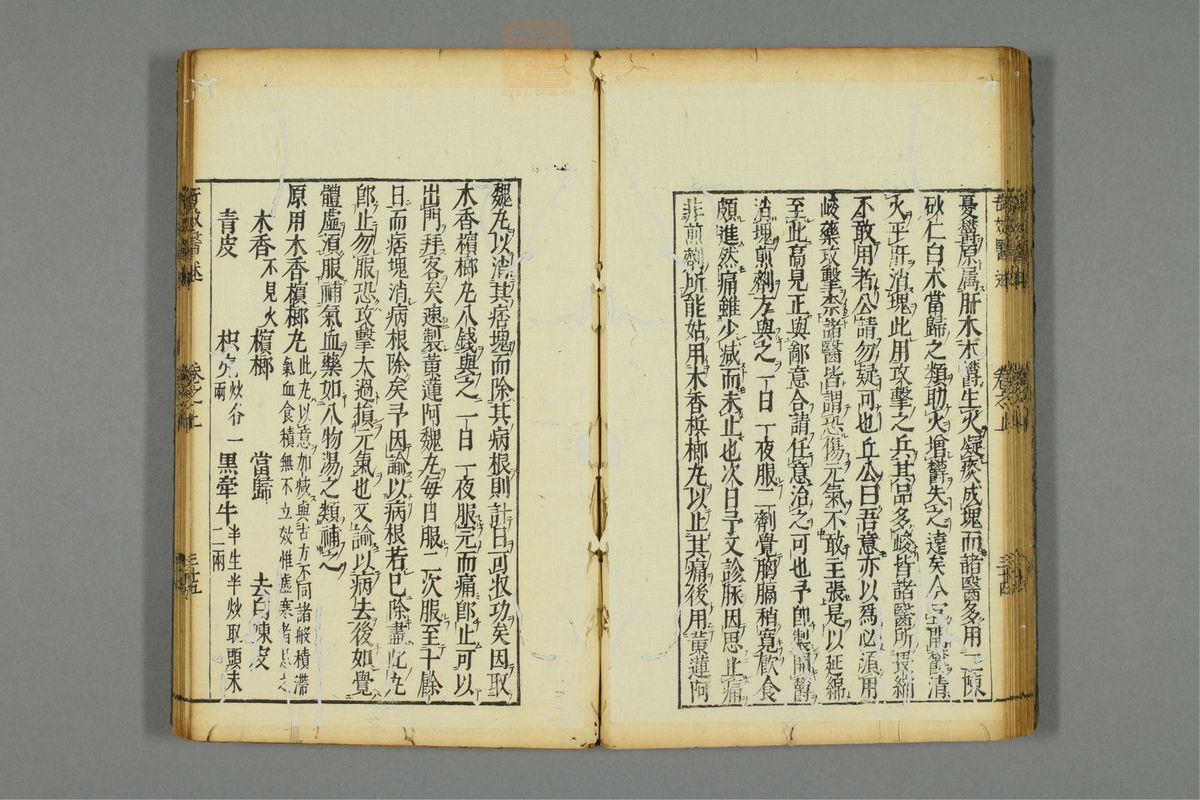 憂鬱原屬肝木木鬱生火凝痰成塊而諸醫多用二陳
砂仁白朮當歸之類助火增鬱失之遠矣今宜開鬱清
火平肝消塊此用攻擊之兵其品多峻皆諸醫所畏縮
不敢用者公請勿疑可也丘公曰吾意亦以爲必須用
峻藥攻擊柰諸醫皆謂恐傷元氣不敢主張是以延綿
至此高見正與鄙意合請任意治之可也予卽製開鬱
消塊煎劑方與之一日一夜服二劑覺胸膈稍寬飲食
頗進然痛雖少減而未止也次日予又診脉因思止痛
非煎劑所能姑用木香梹榔丸以止其痛後用黃蓮阿
魏丸以消其痞塊而除其病根則計日可收功矣因取
木香檳榔丸八錢與之一日一夜服完而痛卽止可以
出門拜客矣速製黃蓮阿魏丸每日服一次服至十餘
日而痞塊消病根除矣予因諭以病根若已除盡此丸
卽止勿服恐攻擊太過損元氣也又諭以病去後如覺
體虛須服補氣血藥如八物湯之類補之
原用木香檳榔丸 此丸以意加減與古方不同諸般積滯
氣血食積無不立效惟虛寒者忌之
木香 不見火 檳榔 當歸 去白陳皮
青皮 枳壳 炒各一兩 黑牽牛 半生半炒取頭末二兩
卷之上
三十五